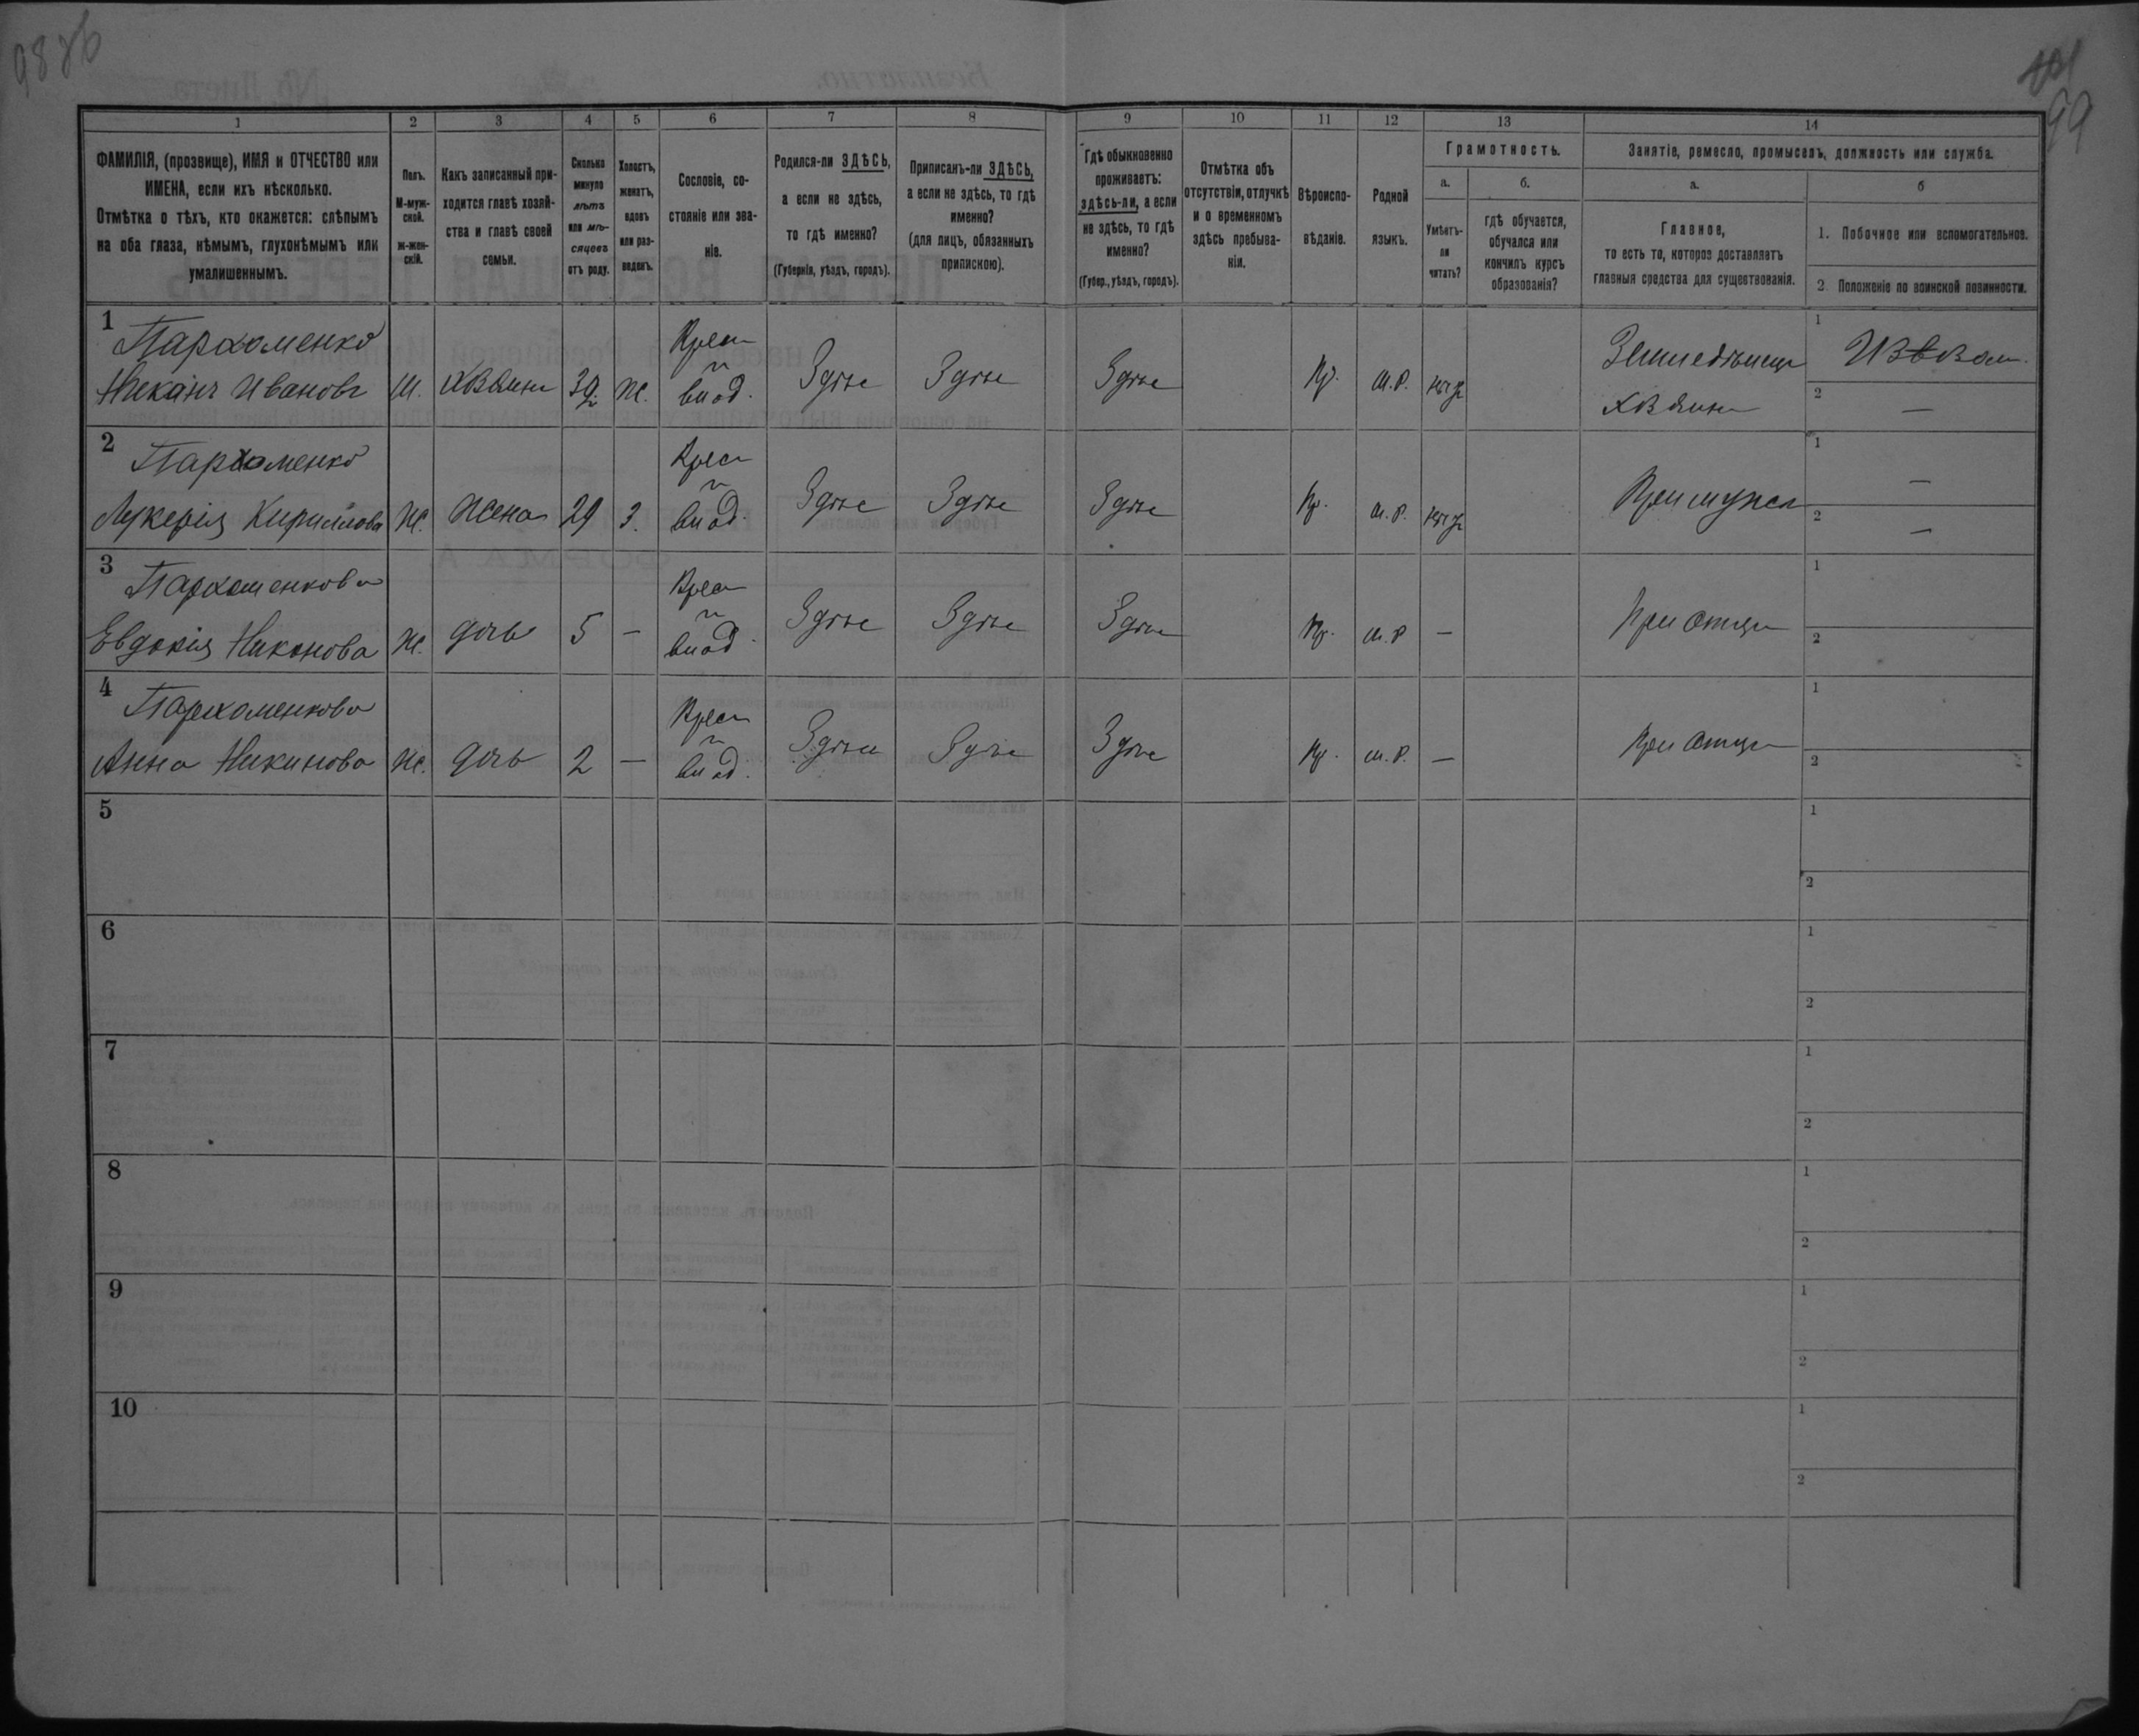 98 об
99
1
2
3
4
5
6
7
8
9
10
11
12
13
14
ФАМИЛІЯ, (прозвище), ИМЯ и ОТЧЕСТВО или
ИМЕНА, если ихъ нѣсколько.
Отмѣтка о тѣхъ, кто окажется: слѣпымъ
на оба глаза, нѣмымъ, глухонѣмымъ или
умалишеннымъ.
Полъ.
М-муж-
ской.
ж-жен-
скій.
Какъ записанный при-
ходится главѣ хозяй-
ства и главѣ своей
семьи.
Сколько
минуло
лѣтъ
или мѣ-
сяцевъ
отъ роду.
Холостъ,
женатъ,
вдовъ
или раз-
веденъ.
Сословіе, со-
стояніе или зва-
ніе.
Родился-ли ЗДѢСЬ,
а если не здѣсь,
то гдѣ именно?
(Губернія, уѣздъ, городъ).
Приписанъ-ли ЗДѢСЬ,
а если не здѣсь, то гдѣ
именно?
(для лицъ, обязанныхъ
припискою).
Гдѣ обыкновенно
проживаетъ:
здѣсь-ли, а если
не здѣсь, то гдѣ
именно?
(Губер., уѣздъ, городъ).
Отмѣтка объ
отсутствіи, отлучкѣ
и о временномъ
здѣсь пребыва-
ніи.
Вѣроиспо-
вѣданіе.
Родной
языкъ.
Грамотность.
а.
Умѣетъ-
ли
читать?
б.
гдѣ обучается,
обучался или
кончилъ курсъ
образованія?
Занятіе, ремесло, промыселъ, должность или служба.
а.
Главное,
то есть то, которое доставляетъ
главныя средства для существованія.
б
1. Побочное или вспомогательное.
2. Положеніе по воинской повинности.
1
Пархоменко
Никанъ Ивановъ
М.
хозяинъ
Ж.
Крес
Здѣсь
Здѣсь
Здѣсь
Пр.
М.Р.
нѣтъ
хозяинъ
1
Извозъ.
2
—
2
Пархоменко
Лукерія Кирилова
Ж.
Жена
29
З.
Крес
Здѣсь
Здѣсь
Здѣсь
Пр.
М.Р.
нѣтъ
При мужѣ
1
—
2
—
3
Пархоменкова
Евдокія Никонова
Ж.
дочь
5
—
Крес
Здѣсь
Здѣсь
Здѣсь
Пр.
М.Р
—
При отцѣ
1
2
4
Пархоменкова
Анна Никинова
Ж.
дочь
2
—
Крес
Здѣсь
Здѣсь
Здѣсь
Пр.
М.Р.
—
При отцѣ
1
2
5
1
2
6
1
2
7
1
2
8
1
2
9
1
2
10
1
2